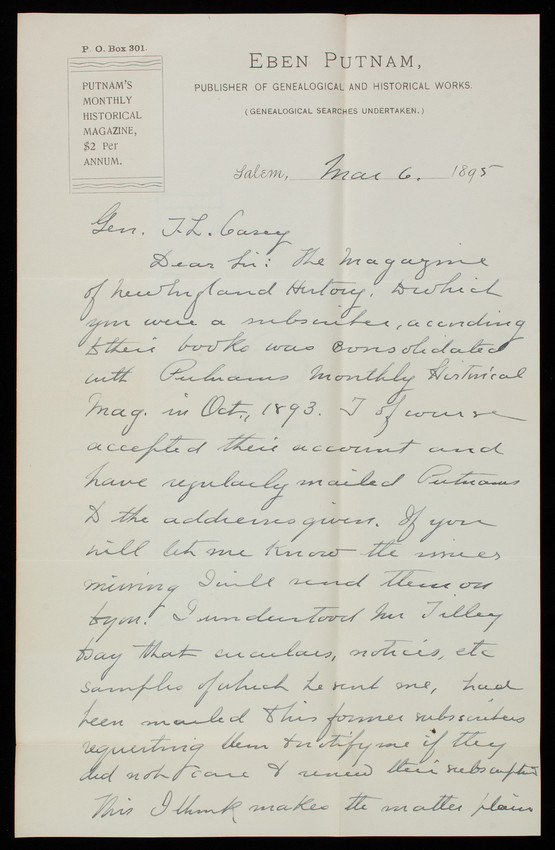 P. O. Box 301.
PUTNAM'S
MONTHLY
HISTORICAL
MAGAZINE,
$2 Per
ANNUM.
EBEN PUTNAM,
PUBLISHER OF GENEALOGICAL AND HISTORICAL WORKS.
(GENEALOGICAL SEARCHES UNDERTAKEN.)
Salem, Mar 6. 1895
Gen. T. L. Casey
Dear Sir: The Magazine
of New England History, to which
you were a subscriber, according
to their books was consolidated
with Putnams Monthly Historical
Mag. in Oct., 1893. I of course
accepted their account and
have regularly mailed Putnams
to the addresses given. If you
will let me know the issues
missing I will send them on
to you. I understood Mr Tilley
to say that circulars, notices, etc
samples of which he sent me, had
been mailed to his former subscribers
requesting them to notify me if they
did not care to renew their subscription
This I think makes the matter plain